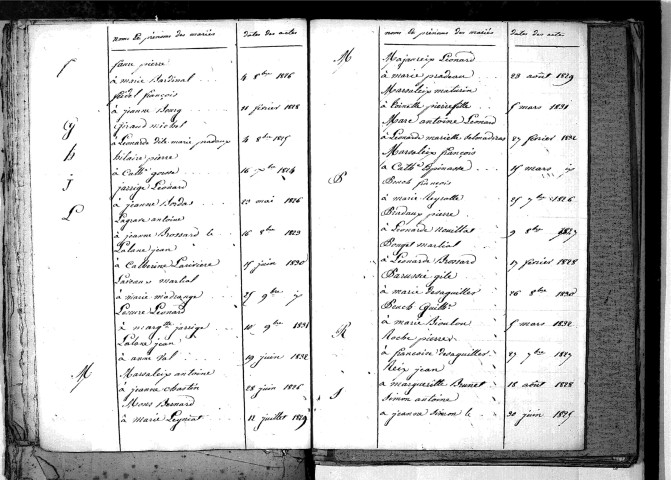 noms et prénoms des mariés dates des actes
f
faure pierre
à marie Bardinal 4 8bre 1826
fredel françois
à jeanne Bourg 11 février 1828
G
Giraud michel
à Léonarde dite marie pradaux 4 8bre 1825
h
hilaire pierre
à Cathe gouse 16 Xbre 1824
j
jarrige Léonard
à jeanne Bordas 23 mai 1826
L
Lagrave antoine
à jeanne Brossard le 16 8bre 1823
Lalane jean
à Catherine Larivière 15 juin 1830
martial
à marie madrange 25 9bre
Lavure Léonard
à margte jarrige 10 9bre 1831
Lalane jean
à anne Val 19 juin 1832
M
Marsaleix antoine
à jeanne Chastin 28 juin 1826
Mons Bernard
à marie Leyniat 12 juillet 1829
noms et prénoms des mariés dates des actes
M
Majanceix Léonard
à marie pradeau 23 août 1829
Marsaleix maturin
à Toinette pierrefitte 5 mars 1831
Mare antoine Léonard
à Léonarde mariette 27 février 1832
Marsaleix françois
à Cathe Espinasse 15 mars
P
Peuch françois
à marie Peyratte 25 7bre 1826
Pradaux pierre
à Léonarde nouillat 9 8bre 1827
Pouget martial
à Léonarde Brossard 17 février 1828
Parussie gile
à marie desaguilles 26 8bre 1830
Peuch Guille
à marie Bioulou 5 mars 1832
R
Roche pierre
à francoise desaguilles 27 7bre 1827
Reix jean
à marguerite Brunet 18 août 1828
S
Simon antoine
à jeanne Simon le 30 juin 1825